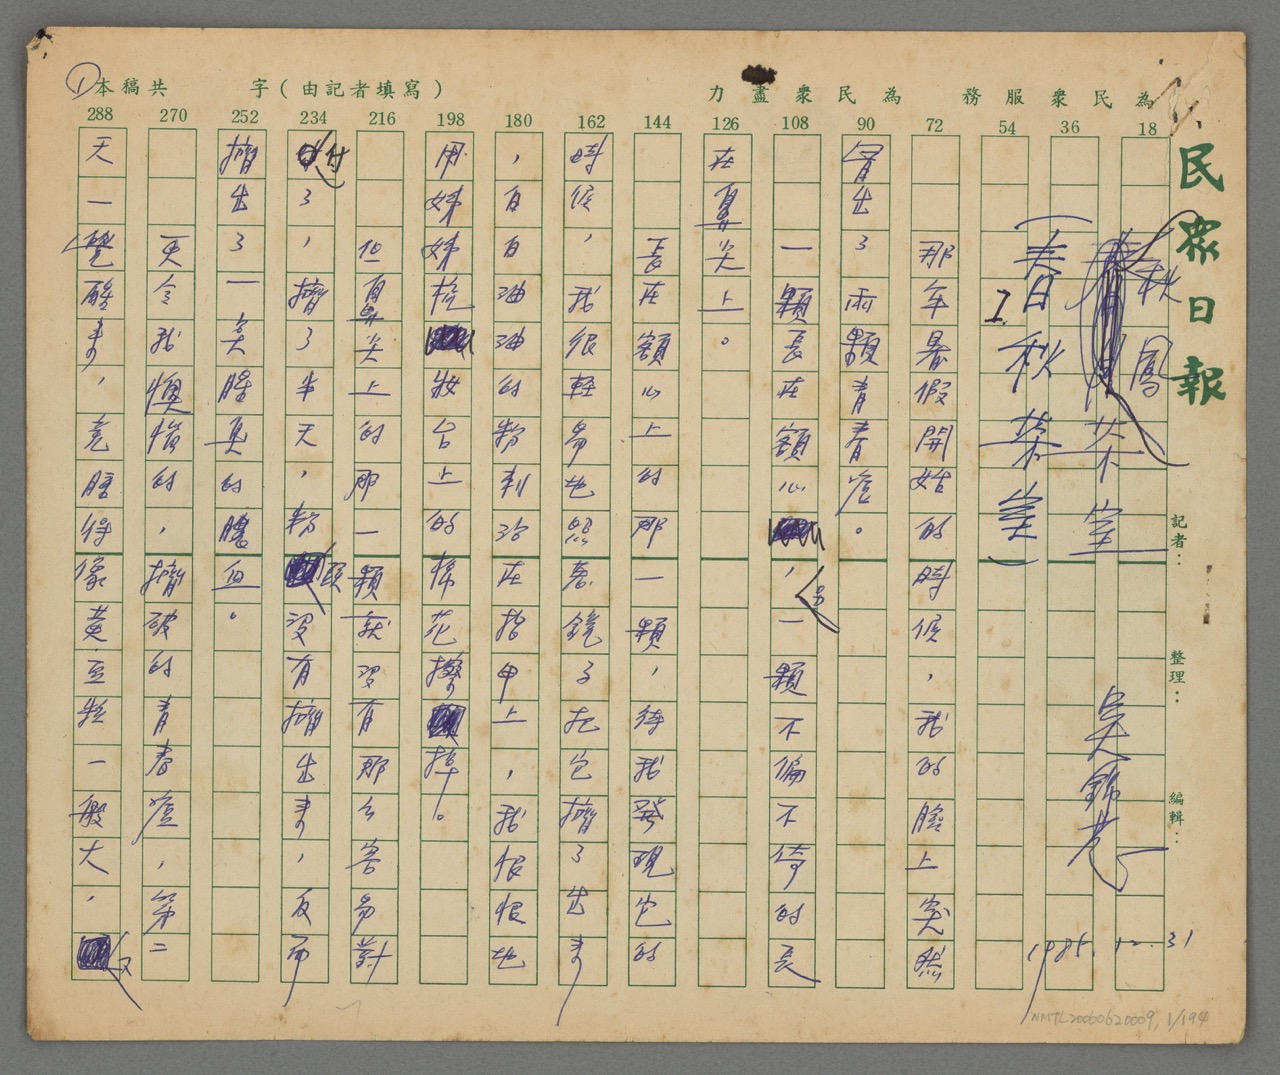 為民衆服務 為民衆盡力
本稿共 字(由記者填寫)
①
18 36 54 72 90 108 126 144 162 180 198 216 234 252 270 288
民衆日報
記者:
整理:
編輯:
秋鳳
茶室
吳錦發
1985.12.31
(美日秋茶室)
I
那年暑假開始的時候,我的臉上突然
冒出了兩顆青春痘。
一顆長在額心,另一顆不偏不倚的長
在鼻尖上。
長在額心上的那一顆,待我發現它的
時候,我很輕易地照著鏡子把它擠了出來
,白白油油的粉刺沾在指甲上,我恨恨地
用姊姊梳妝台上的棉花擦掉。
但鼻尖上的那一顆就沒有那麼容易對
付了,擠了半天,粉頭沒有擠出來,反而
擠出了一美腥臭的膿血。
更令我懊惱的,擠破的青春痘,第二
天一覺醒來,竟腫得像黃豆粒一般大,又
NMTL20060620009, 1/194